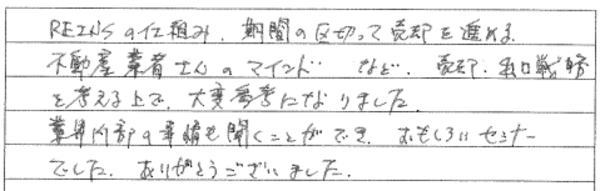 REINSの仕組み、期間の区切って売却を進める
不動産業者さんのマインド など、売却、出口戦略
を考える上で、大変参考になりました。
業界内部の事情も聞くことができ、おもしろいセミナー
でした。ありがとうございました。